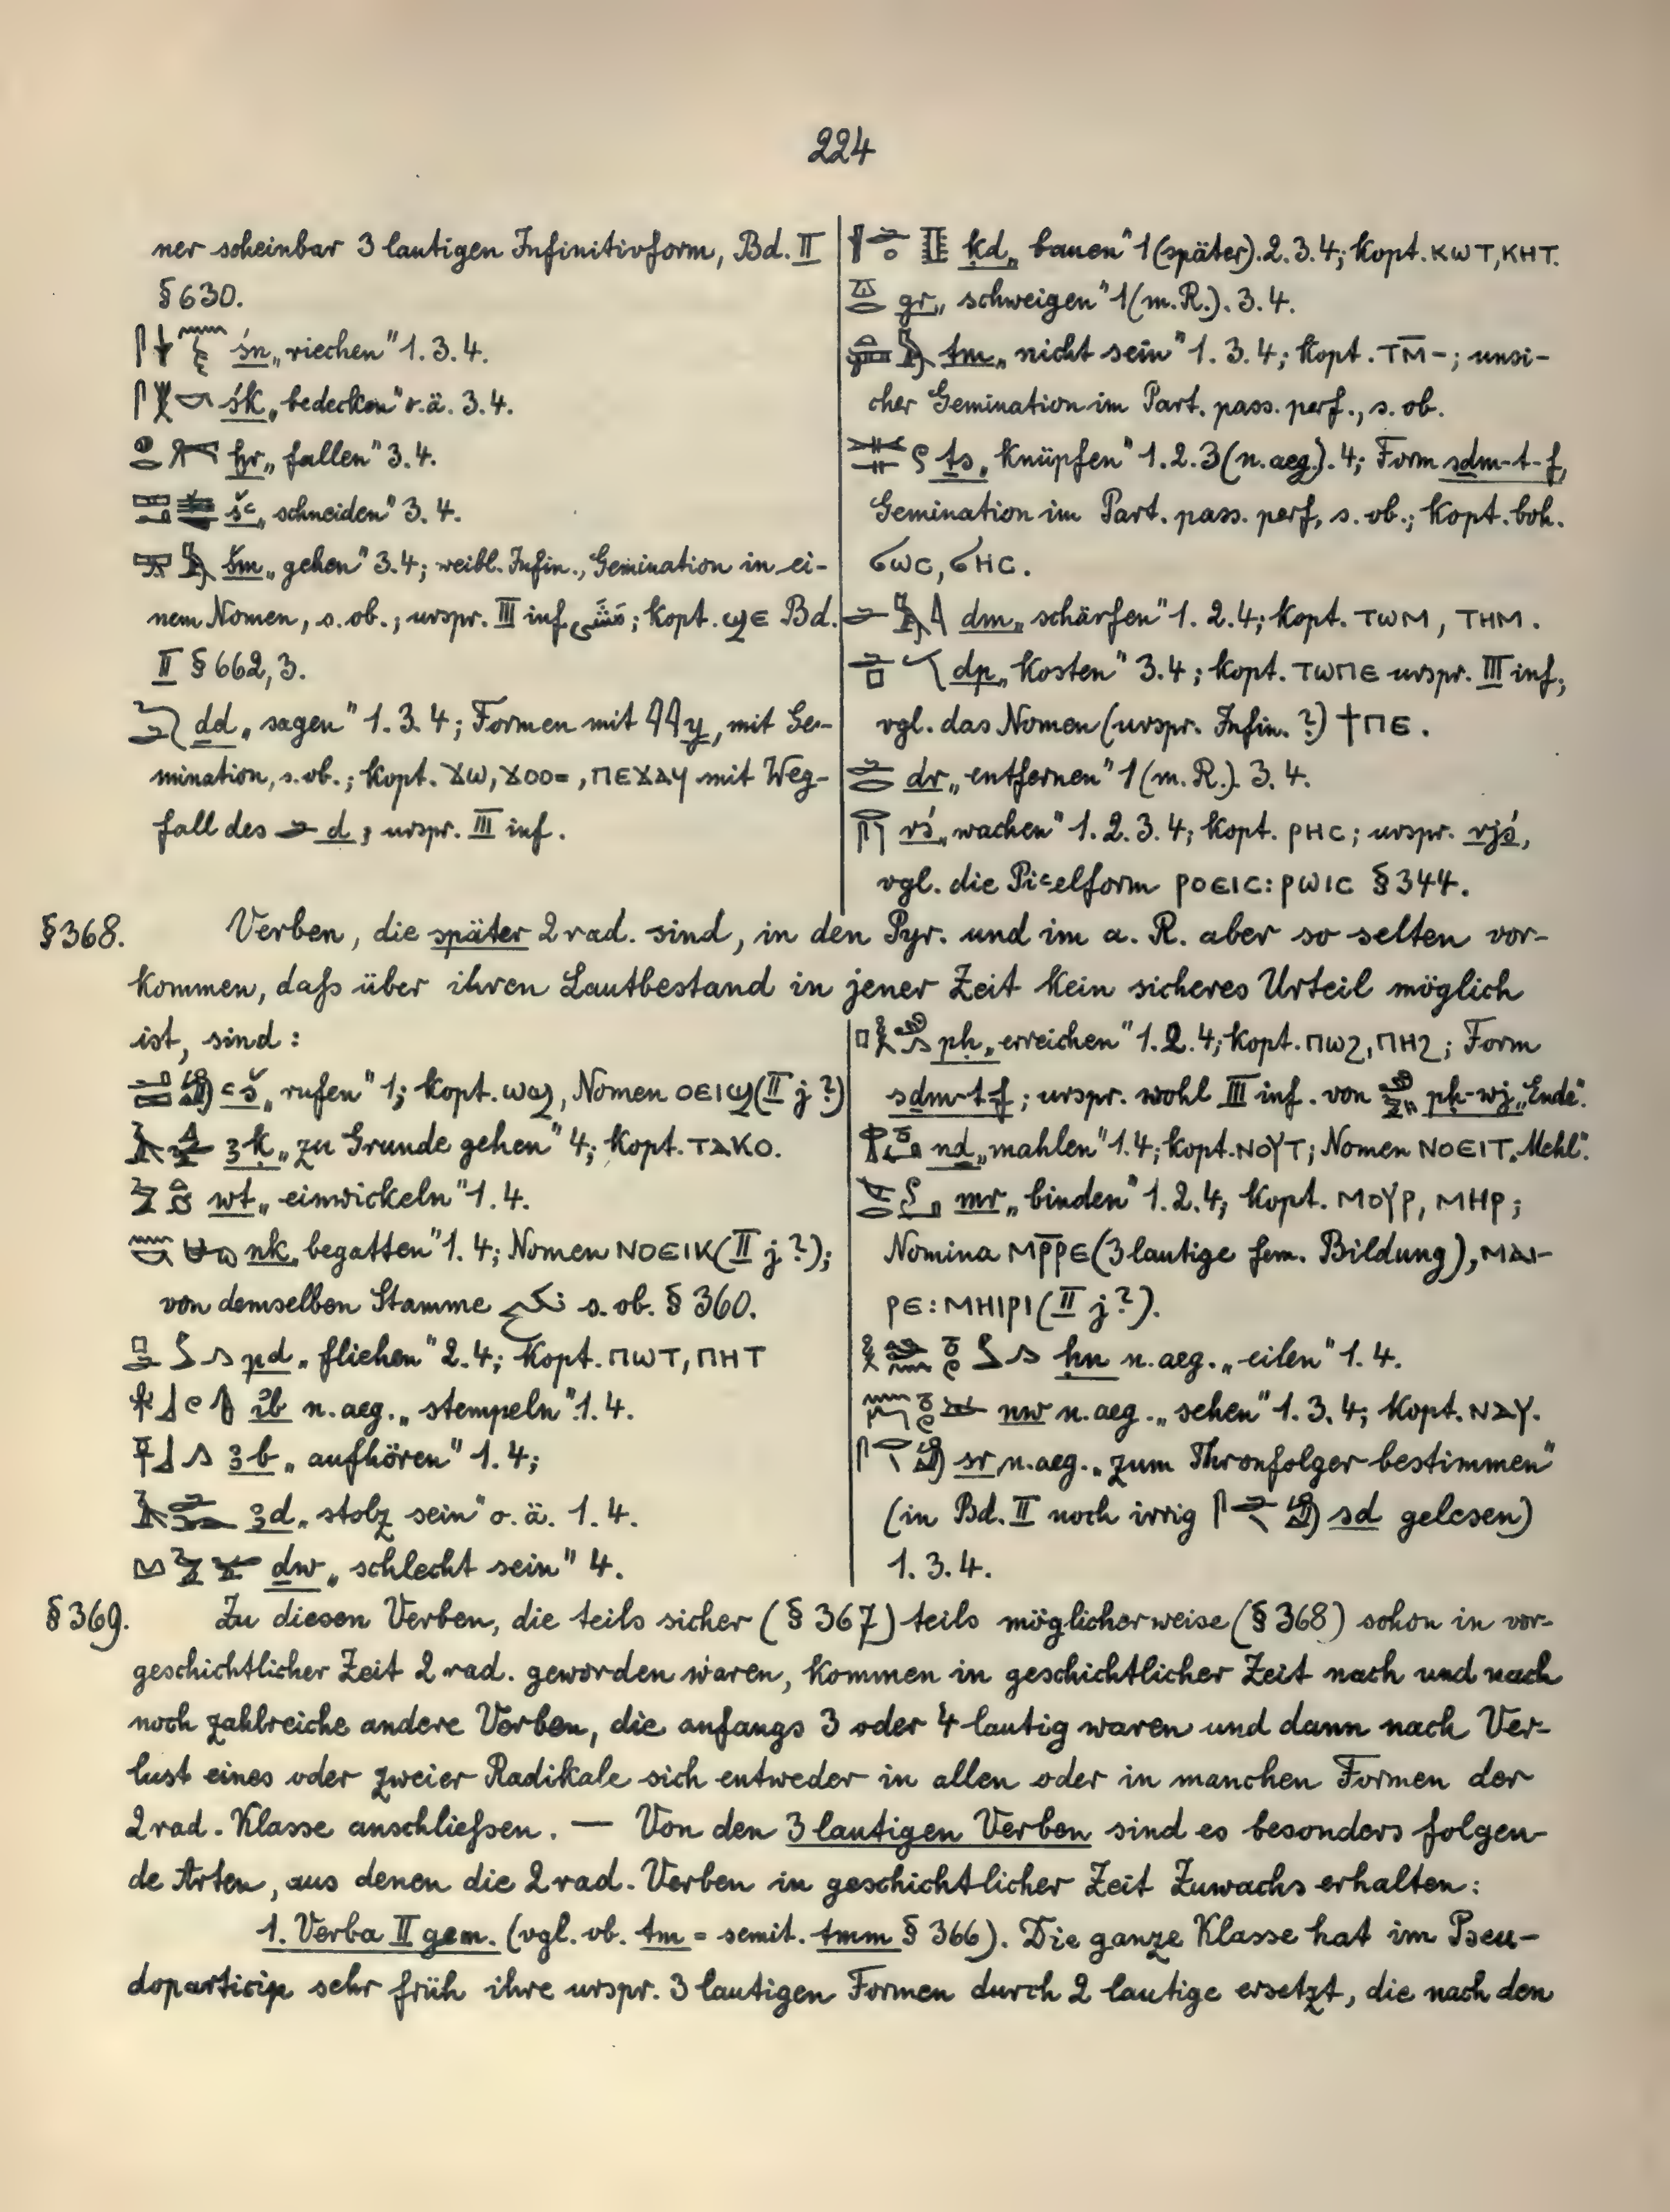 224
ner scheinbar 3 lautigen Infinitivform, Bd. II
§ 630.
śn „riechen" 1. 3. 4.
śk „bedecken" o. ä. 3. 4.
ḫr „fallen" 3. 4.
šꜥ „schneiden" 3. 4.
šm „gehen" 3. 4; weibl. Infin., Gemination in ei-
nem Nomen, s. ob.; urspr. III inf. ; kopt. ϣⲉ Bd.
II § 662, 3.
ḏd „sagen" 1. 3. 4; Formen mit y, mit Ge-
mination, s. ob.; kopt. ϫⲱ, ϫⲟⲟ=, ⲡⲉϫⲁϥ mit Weg-
fall des d; urspr. III inf.
ḳd „bauen" 1 (später). 2. 3. 4; kopt. ⲕⲱⲧ, ⲕⲏⲧ.
gr „schweigen" 1 (m. R.). 3. 4.
tm „nicht sein" 1. 3. 4; kopt. ⲧⲙ̄-; unsi-
cher Gemination im Part. pass. perf., s. ob.
ṯs „knüpfen" 1. 2. 3 (n. aeg.). 4; Form sḏm-t-f,
Gemination im Part. pass. perf., s. ob.; kopt. boh.
ϭⲱⲥ, ϭⲏⲥ.
dm „schärfen" 1. 2. 4; kopt. ⲧⲱⲙ, ⲧⲏⲙ.
dp „kosten" 3. 4; kopt. ⲧⲱⲡⲉ urspr. III inf.,
vgl. das Nomen (urspr. Infin.?) ϯⲡⲉ.
dr „entfernen" 1 (m. R.). 3. 4.
rś „wachen" 1. 2. 3. 4; kopt. ⲣⲏⲥ; urspr. rjś,
vgl. die Piꜥelform ⲣⲟⲉⲓⲥ: ⲣⲱⲓⲥ § 344.
§ 368. Verben, die später 2 rad. sind, in den Pyr. und im a. R. aber so selten vor-
kommen, daſs über ihren Lautbestand in jener Zeit kein sicheres Urteil möglich
ist, sind:
ꜥš „rufen" 1; kopt. ⲱϣ, Nomen ⲟⲉⲓϣ (II j?)
ꜣḳ „zu Grunde gehen" 4; kopt. ⲧⲁⲕⲟ.
wt „einwickeln" 1. 4.
nk „begatten" 1. 4; Nomen ⲛⲟⲉⲓⲕ (II j?);
von demselben Stamme s. ob. § 360.
pd „fliehen" 2. 4; kopt. ⲡⲱⲧ, ⲡⲏⲧ
ꜣb n. aeg. „stempeln" 1. 4.
ꜣb „aufhören" 1. 4;
ꜣd „stolz sein" o. ä. 1. 4.
ḏw „schlecht sein" 4.
pḥ „erreichen" 1. 2. 4; kopt. ⲡⲱϩ, ⲡⲏϩ; Form
sḏm-t-f; urspr. wohl III inf. von pḥ-wj „Ende".
nḏ „mahlen" 1. 4; kopt. ⲛⲟⲩⲧ; Nomen ⲛⲟⲉⲓⲧ „Mehl".
mr „binden" 1. 2. 4; kopt. ⲙⲟⲩⲣ, ⲙⲏⲣ;
Nomina ⲙⲣ̄ⲣⲉ (3 lautige fem. Bildung), ⲙⲁⲓ-
ⲣⲉ: ⲙⲏⲓⲣⲓ (II j?).
ḥn n. aeg. „eilen" 1. 4.
nw n. aeg. „sehen" 1. 3. 4; kopt. ⲛⲁⲩ.
sr n. aeg. „zum Thronfolger bestimmen"
(in Bd. II noch irrig sd gelesen)
1. 3. 4.
§ 369. Zu diesen Verben, die teils sicher (§ 367) teils möglicherweise (§ 368) schon in vor-
geschichtlicher Zeit 2 rad. geworden waren, kommen in geschichtlicher Zeit nach und nach
noch zahlreiche andere Verben, die anfangs 3 oder 4 lautig waren und dann nach Ver-
lust eines oder zweier Radikale sich entweder in allen oder in manchen Formen der
2 rad. Klasse anschlieſsen. — Von den 3 lautigen Verben sind es besonders folgen-
de Arten, aus denen die 2 rad. Verben in geschichtlicher Zeit Zuwachs erhalten:
1. Verba II gem. (vgl. ob. tm = semit. tmm § 366). Die ganze Klasse hat im Pseu-
doparticip sehr früh ihre urspr. 3 lautigen Formen durch 2 lautige ersetzt, die nach den